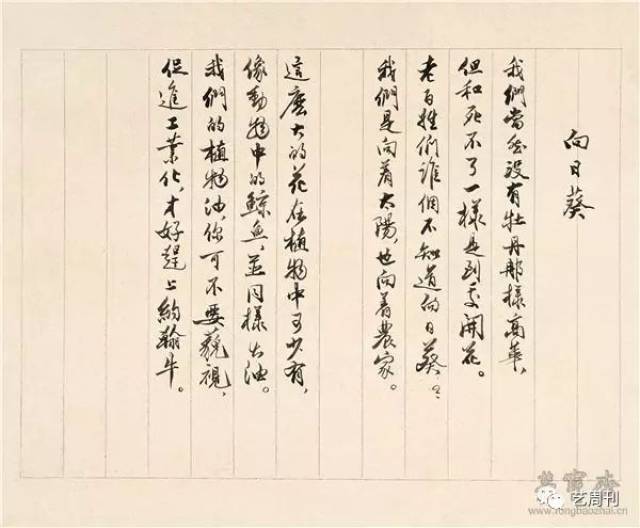 向日葵
我們當然沒有牡丹那樣高華，
但和死不了一樣是到處開花。
老百姓們誰個不知道向日葵：
我們是向着太陽，也向着農家。
這麽大的花在植物中可少有，
像動物中的鯨魚，並同樣出油。
我們的植物油，你可不要藐視，
促進工業化，才好趕上約翰牛。
榮寶齋
www.rongbaozhai.cn
艺周刊